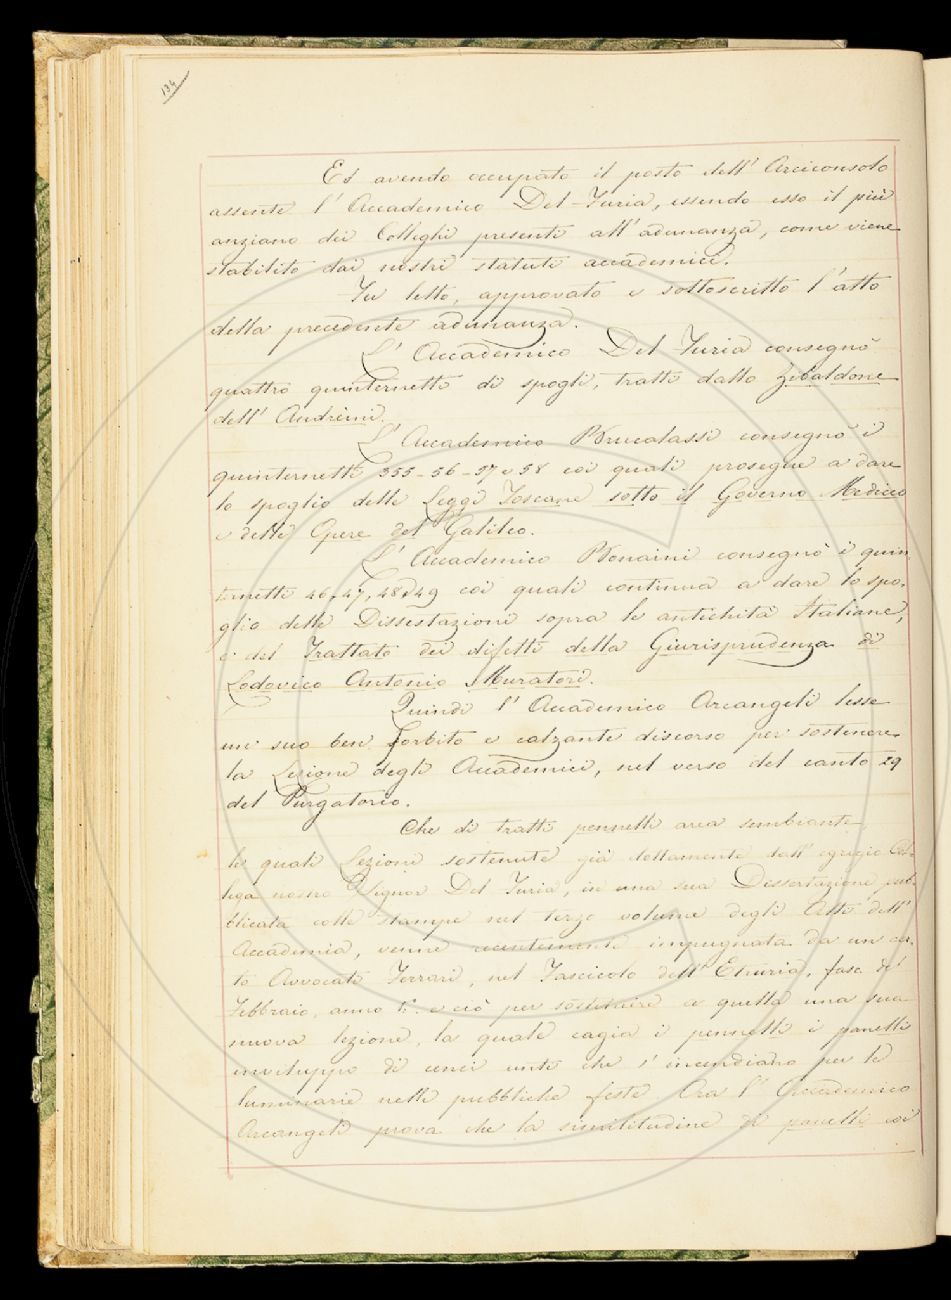 134
Ed avendo occupato il posto dell' Arciconsolo
assente l' Accademico Del-Furia, essendo esso il più
anziano dei Colleghi presenti all' adunanza, come viene
stabilito dai nostri statuti accademici.
Fu letto, approvato e sottoscritto l' atto
della precedente adunanza.
L' Accademico Del Furia consegnò
quattro quinternetti di spogli, tratti dallo Zibaldone
dell' Andreini.
L' Accademico Brucalassi consegnò i
quinternetti 355-56-57 e 58 coi quali prosegue a dare
lo spoglio delle Leggi Toscane sotto il Governo Mediceo
e delle Opere del Galileo.
L' Accademico Bonaini consegnò i quin
ternetti 46, 47, 48 e 49 coi quali continua a dare lo spo-
glio delle Dissertazioni sopra le antichità Italiane,
e del Trattato dei difetti della Giurisprudenza di
Lodovico Antonio Muratori.
Quindi l' Accademico Arcangeli lesse
un suo ben forbito e calzante discorso per sostenere
la Lezione degli Accademici, nel verso del canto 29
del Purgatorio.
Che di tratti pennelli avea sembiante
la quale Lezione sostenuta già dottamente dall' egregio Col-
lega nostro Signor Del Furia, in una sua Dissertazione pub-
blicata colle stampe nel terzo volume degli Atti dell'
Accademia, venne recentemente impugnata da un cer-
to Avvocato Ferrari, nel Fascicolo dell' Etruria, fasc. di
Febbraio, anno e ciò per sostituire a quella una sua
nuova lezione, la quale cagia i pennelli i panelli
inviluppo di cenci unti che s' incendiano per le
luminarie nelle pubbliche feste Ora l' Accademico
Arcangeli prova che la similitudine di panelli coi